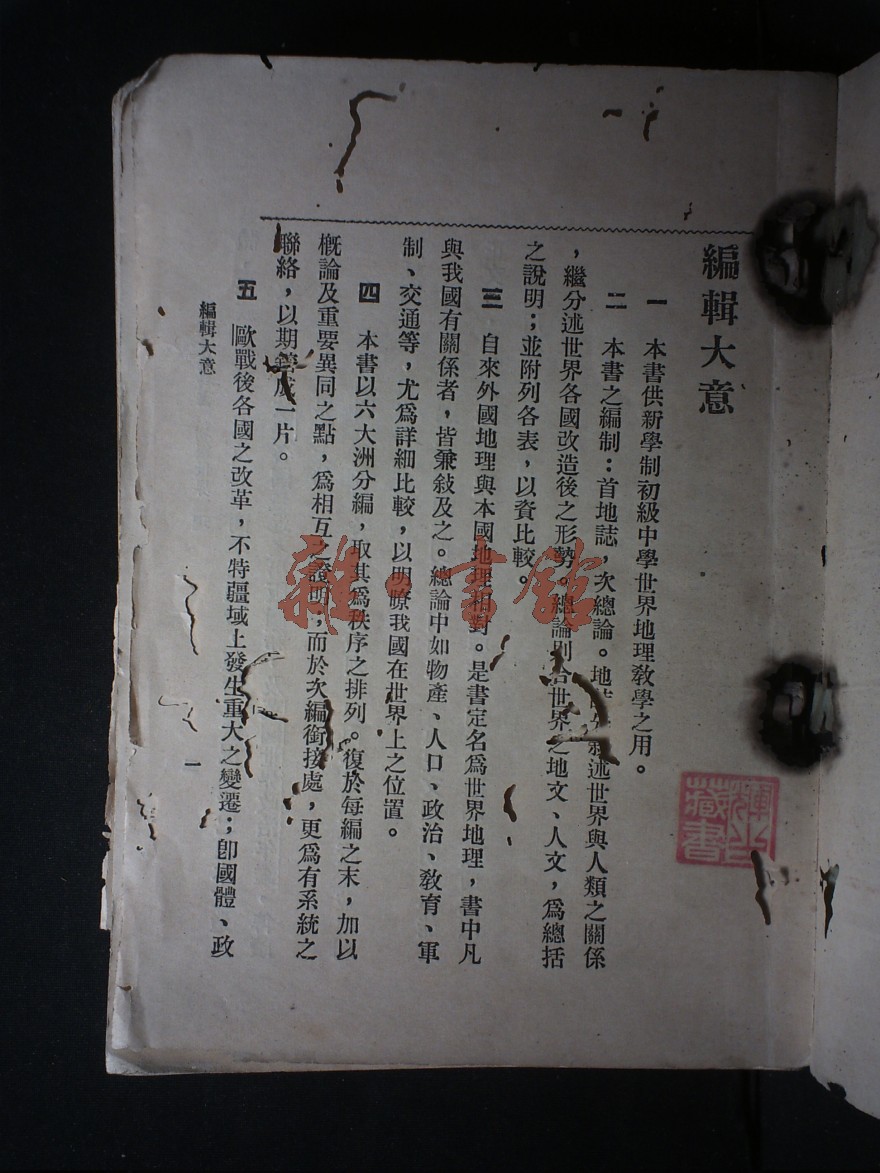 編輯大意
一　本書供新學制初級中學世界地理教學之用。
二　本書之編制：首地誌，次總論。地誌分敍述世界與人類之關係
，繼分述世界各國改造後之形勢。總論則合世界之地文、人文，爲總括
之說明；並附列各表，以資比較。
三　自來外國地理與本國地理相對。是書定名爲世界地理，書中凡
與我國有關係者，皆兼敍及之。總論中如物產、人口、政治、教育、軍
制、交通等，尤爲詳細比較，以明瞭我國在世界上之位置。
四　本書以六大洲分編，取其爲秩序之排列。復於每編之末，加以
概論及重要異同之點，爲相互之證明；而於次編銜接處，更爲有系統之
聯絡，以期成一片。
五　歐戰後各國之改革，不特疆域上發生重大之變遷；卽國體、政
編輯大意
一
雜·書館
藏書